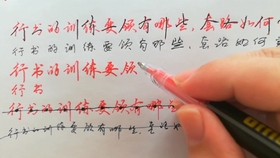 行书的训练要领有哪些，套路如何
行书的训练要领有哪些，套路如何
行书的训练要领
行书
行书的训练要领有哪
行书的训练要领有哪些，套路